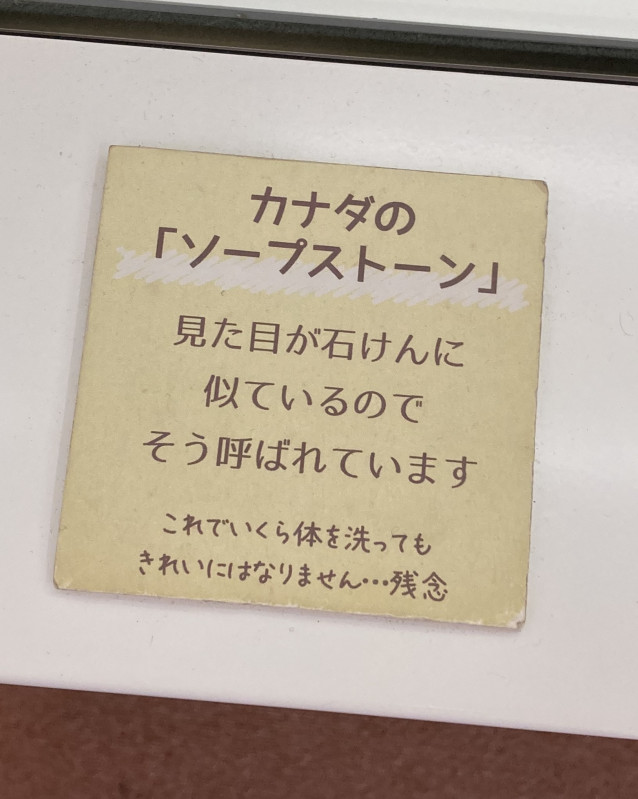 カナダの
「ソープストーン」
見た目が石けんに
似ているので
そう呼ばれています
これでいくら体を洗っても
きれいにはなりません…残念